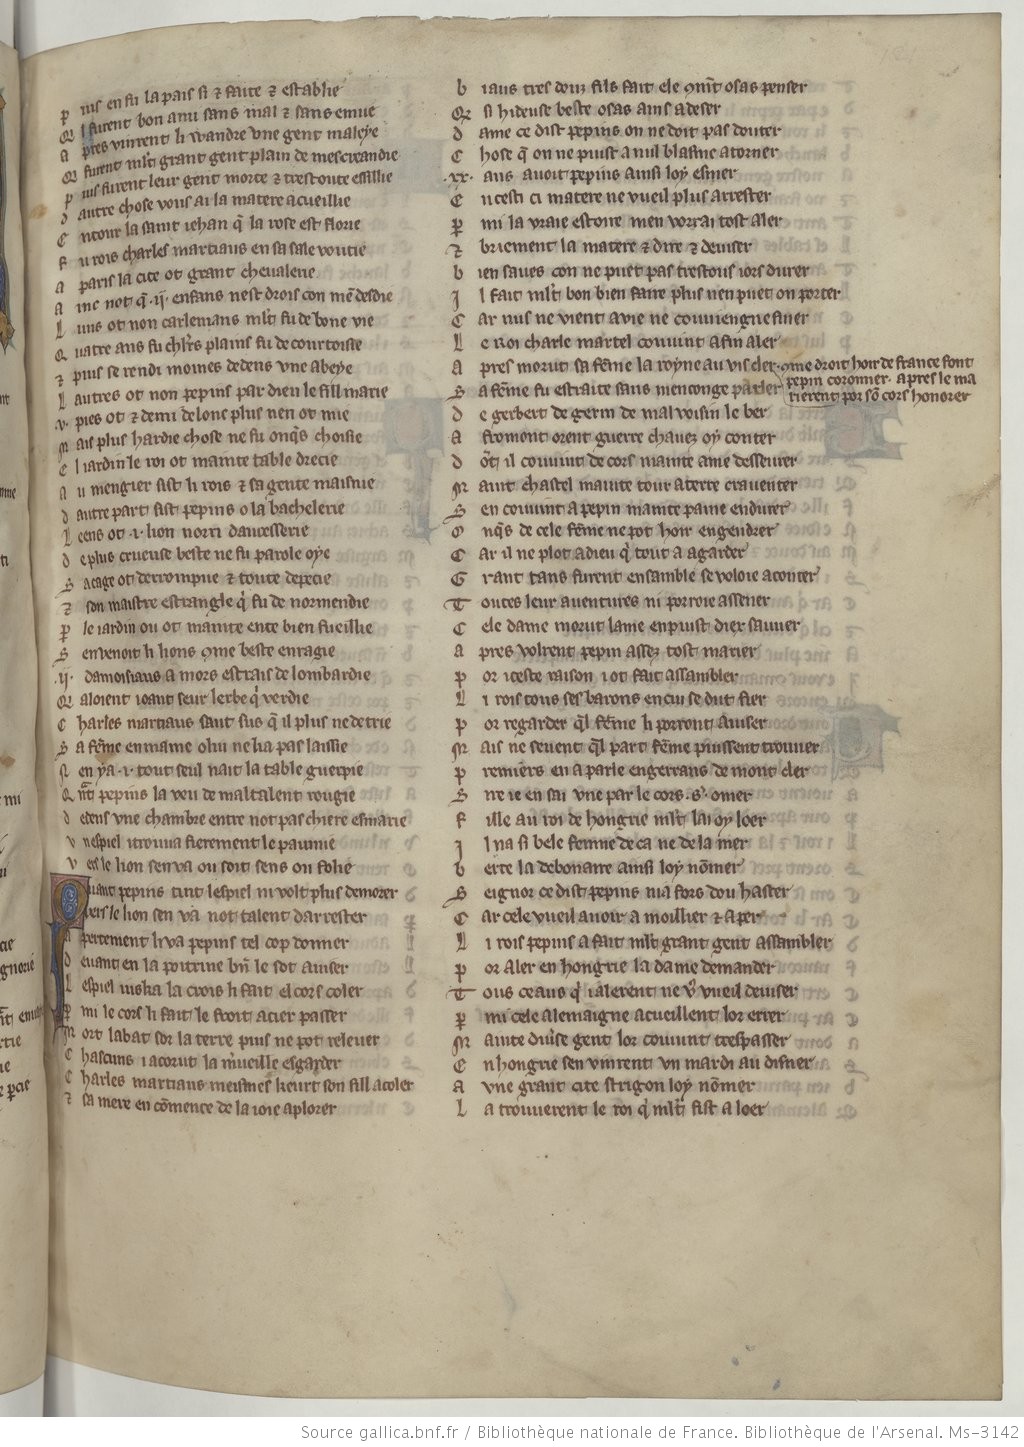 puis en fu la pais si ⁊ faite ⁊ establie
Ql furent bon ami sans mal ⁊ sans enuie
apres vinrent li wandre vne gent maleye
Qi furent ml't grant gent plain de mescreandie
puis furent leur gent morte ⁊ trestoute essillie
dautre chose vous ai la matere acueillie
Entour la saint iehan q̄ la rose est florie
fu rois charles martiaus en sa sale voutie
a paris la cite ot grant cheualerie
ainc not q̄ .ij. enfans nest drois con m̄ desdie
Luns ot non carlemans ml't fu de bone vie
Quatre ans fu chl'rs plains fu de courtoisie
⁊ puis se rendi moines dedens vne abeye
Lautres ot non pepins par dieu le fill marie
.v. pies ot ⁊ demi de lonc plus nen ot mie
Mais plus hardie chose ne fu onq̄s choisie
El iardin le roi ot mainte table drecie
au mengier sist li rois ⁊ sa gente maisnie
dautre part sist pepins o la bachelerie
Leens ot .i. lion norri dancesserie
de plus crueuse beste ne fu parole oye
Sa cage ot derrompue ⁊ toute depecie
⁊ son maistre estrangle q' fu de normendie
Par le iardin ou ot mainte ente bien fueillie
Sen venoit li lions 9me beste enragie
.ij. damoisiaus a mors estrais de lombardie
Qi aloient ioant seur lerbe q' verdie
Charles martiaus saut sus q̄ il plus ne detrie
Sa fēme en maine o lui ne li a pas laissie
Nen y a .i. tout seul nait la table guerpie
Qant pepins la veu de maltalent rougie
dedens vne chambre entre not pas chiere esmarie
vn espiel i trouua fierement le paumie
vers le lion sen va ou soit sens ou folie
Quant pepins tint lespiel ni volt plus demorer
vers le lion sen va not talent darrester
apertement li va pepins tel cop donner
deuant en la poitrine bn̄ le sot auiser
Lespiel iusk a la crois li fait el cors coler
Par mi le cors li fait le froit acier passer
Mort labat sor la terre puis ne pot releuer
Chascuns i acorut la m'ueille esgarder
Charles martiaus meismes keurt son fill acoler
⁊ sa mere en cōmence de la ioie a plorer
biaus tres douz fils fait ele 9mēt osas penser
Q si hideuse beste osas ains adeser
dame ce dist pepins on ne doit pas douter
Chose q̄ on ne puist a nul blasme atorner
.xx. ans auoit pepins ainsi loy esmer
En cesti ci matere ne vueil plus arrester
Par mi la vraie estoire men vorrai tost aler
⁊ briement la matere ⁊ dire ⁊ deuiser
bien saues con ne puet pas trestous iors durer
Il fait ml't bon bien faire plus nen puet on porter
Car nus ne vient a vie ne couuiengne finer
Le Roi charle martel couuint a fin aler
Apres morut sa fēme la royne au vis cler 9me droit hoir de france font
pepin coronner. apres le ma
rierent por sō cors honorer
Sa fēme fu estraite sans menconge parler
de gerbert de gerin de maluoisin le ber
A fromont orent guerre chauez oy conter
dōt il couuint de cors mainte ame desseurer
Maint chastel mainte tour a terre crauenter
Sen couuint a pepin mainte paine endurer
Onq̄s de cele fēme ne pot hoir engendrer
Car il ne plot a dieu q' tout a a garder
Grant tans furent ensamble se voloie aconter
Toutes leur auentures ni porroie assener
Cele dame morut lame en puist diex sauuer
apres volrent pepin assez tost marier
por iceste raison i ot fait assambler
Li rois tous ses barons en cui se dut fier
por regarder q̄l fēme li porront auiser
Mais ne seuent q̄l part fēme puissent trouuer
premiers en a parle engerrans de mont cler
Sire ie en sai vne par le cors .s'. omer
Fille au roi de hongrie ml't lai oy loer
Il na si bele femme de ca ne de la mer
berte la debonaire ainsi loy nōmer
Seignor ce dist pepins ni a fors dou haster
Car cele vueil auoir a moillier ⁊ a per
Li rois pepins a fait ml't grant gent assambler
por aler en hongrie la dame demander
Tous ceaus q' i alerent ne v9 vueil deuiser
Par mi cele alemaigne acueillent lor errer
Mainte diu'se gent lor couuint trespasser
En hongrie sen vinrent vn mardi au disner
A vne grant cite strigon loy nōmer
La trouuerent le roi q' ml't fist a loer
Source gallica.bnf.fr / Bibliothèque nationale de France. Bibliothèque de l'Arsenal. Ms-3142